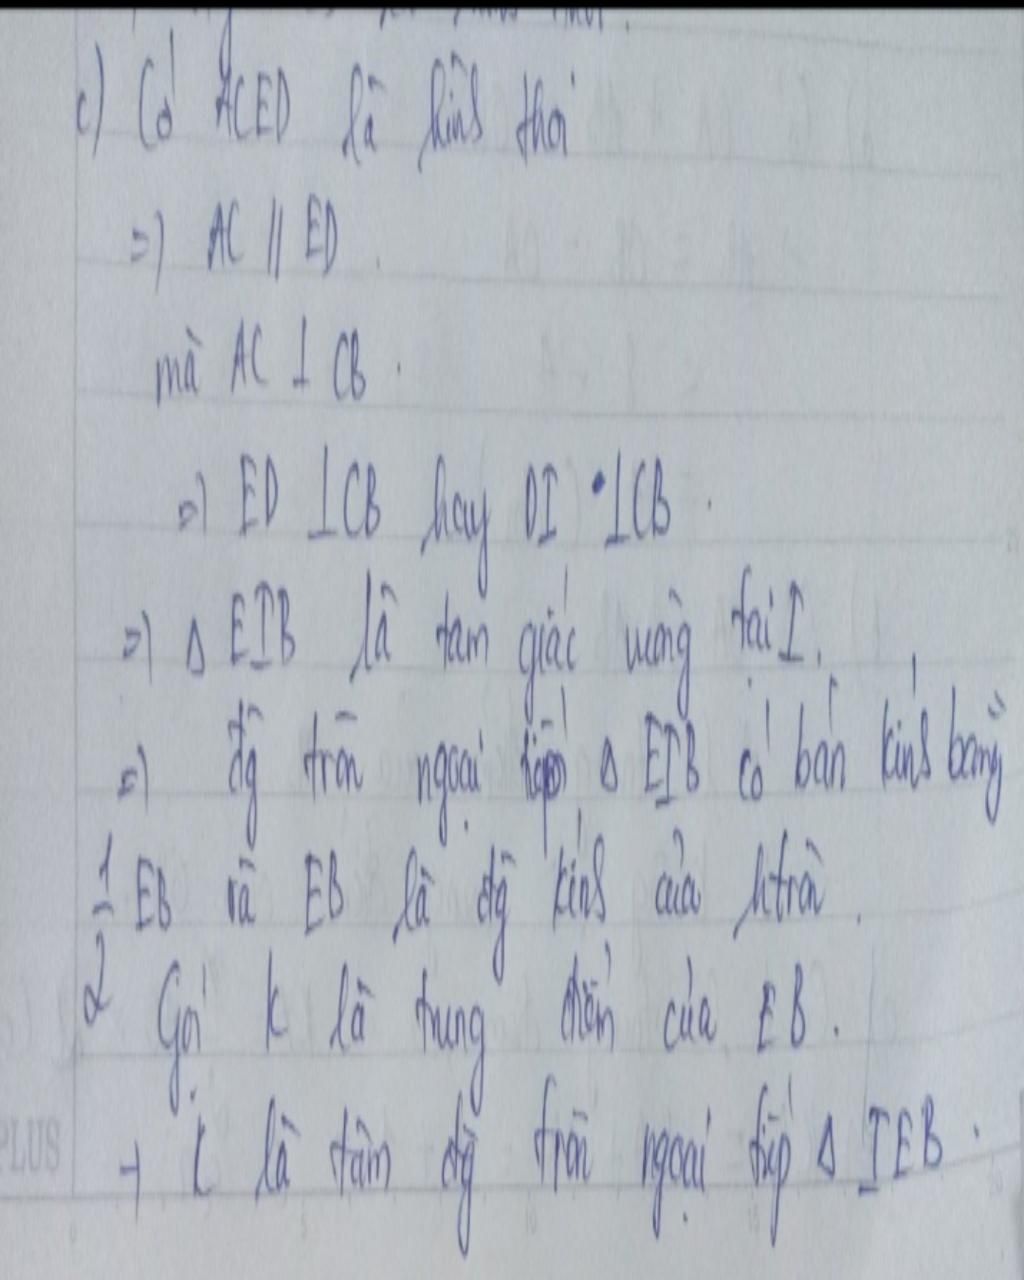 c) Có ACED là hình thoi
=) AC // ED
mà AC ⊥ CB.
=) ED ⊥ CB hay DI ⊥ CB.
=) Δ EIB là tam giác vuông tại I.
=) đg tròn ngoại tiếp Δ EIB có bán kính bằng
1/2 EB và EB là đg kính của htròn.
Gọi K là trung điểm của EB.
→ K là tâm đg tròn ngoại tiếp Δ IEB.
PLUS